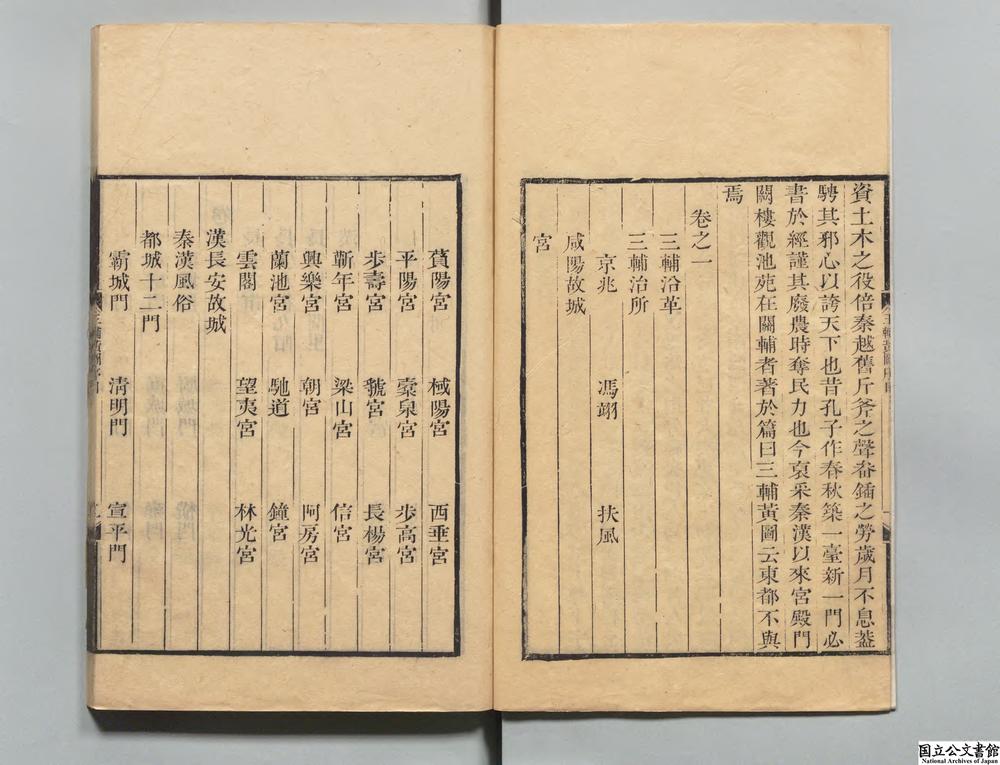 資土木之役倍秦越舊斤斧之聲畚鍤之勞歲月不息葢
騁其邪心以誇天下也昔孔子作春秋築一臺新一門必
書於經謹其廢農時奪民力也今裒采秦漢以來宮殿門
闕樓觀池苑在關輔者著於篇曰三輔黃圖云東都不與
焉
卷之一
三輔沿革
三輔治所
京兆 馮翊 扶風
咸陽故城
宮
萯陽宮 棫陽宮 西垂宮
平陽宮 橐泉宮 步高宮
步壽宮 虢宮 長楊宮
蘄年宮 梁山宮 信宮
興樂宮 朝宮 阿房宮
蘭池宮 馳道 鐘宮
雲閣 望夷宮 林光宮
漢長安故城
秦漢風俗
都城十二門
霸城門 清明門 宣平門
国立公文書館
National Archives of Japan